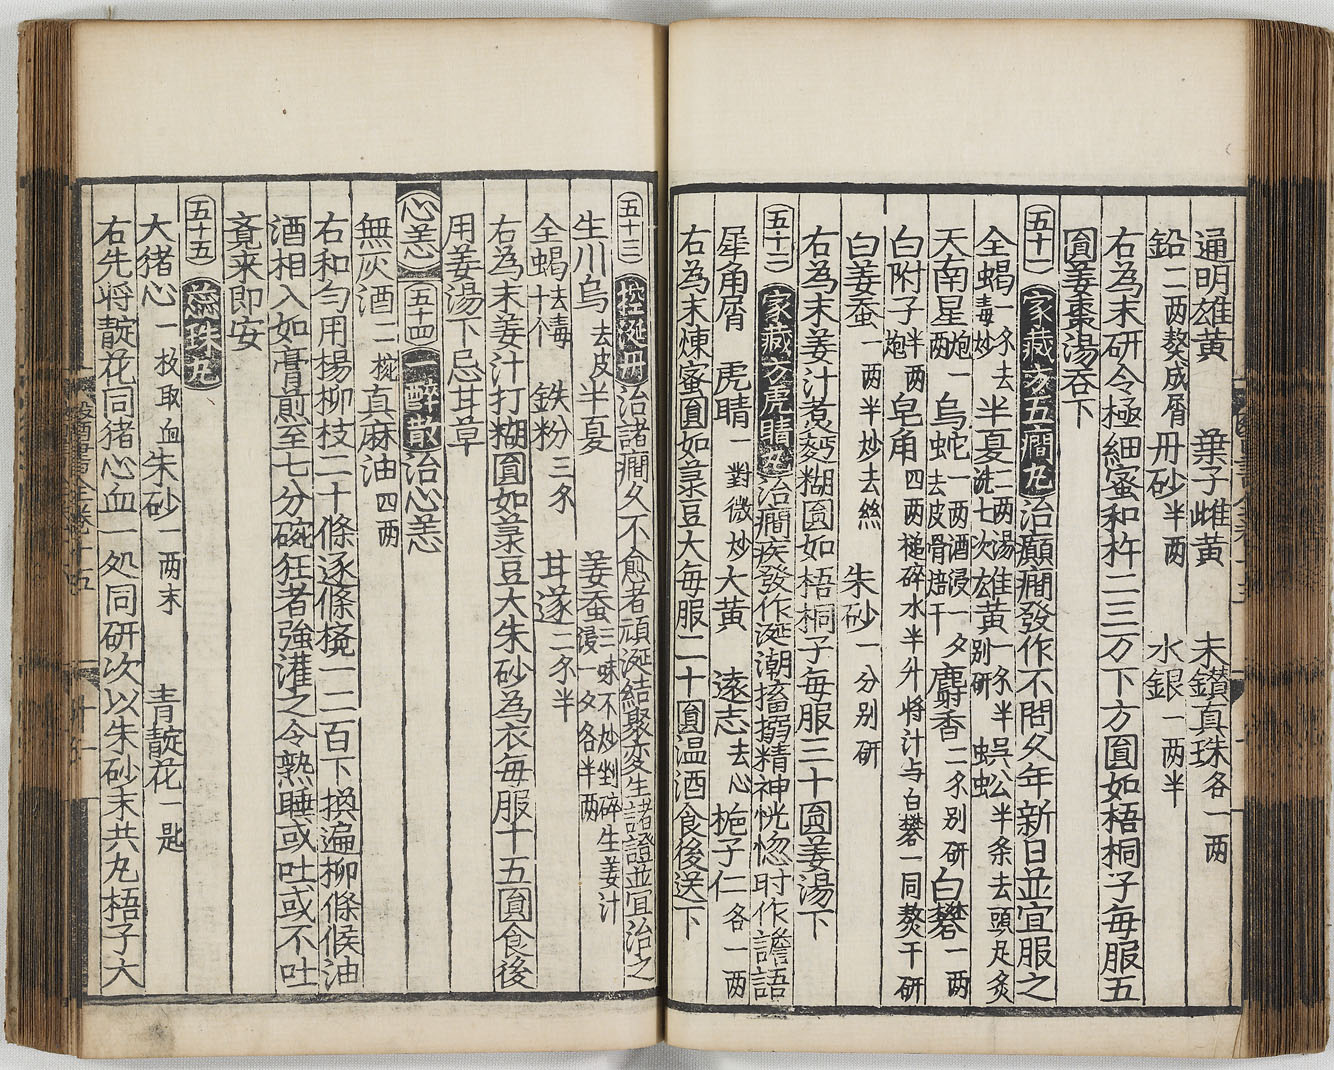 通明雄黄 葉子雌黄 未鑚真珠各一两
鉛二两熬成屑 丹砂半两 水銀一两半
右為末研令極細蜜和杵二三万下方圎如梧桐子毎服五
圎姜棗湯呑下
五十一 家藏方五癎丸 治癲癎發作不問久年新日並宜服之
全蝎一分去毒炒 半夏二两湯洗七次 雄黄一分半别研 蜈蚣半条去頭足炙
天南星一两炮 烏蛇一两酒浸一夕去皮骨焙干 麝香二分别研 白礬一两
白附子半两炮 皂角四两槌碎水半升将汁与白礬一同熬干研
白姜蚕一两半炒去絲 朱砂一分别研
右為末姜汁煮麪糊圎如梧桐子毎服三十圎姜湯下
五十二 家藏方虎睛丸 治癎疾發作涎潮搐搦精神恍惚时作譫語
犀角屑 虎睛一對微炒 大黄 遠志去心 梔子仁各一两
右為末煉蜜圎如菉豆大毎服二十圎温酒食後送下
五十三 控涎丹 治諸癎久不愈者頑涎結聚変生諸證並宜治之
生川烏去皮 半夏 姜蚕三味不炒剉碎生姜汁浸一夕各半两
全蝎十个去毒 鉄粉三分 甘遂二分半
右為末姜汁打糊圎如菉豆大朱砂為衣毎服十五圎食後
用姜湯下忌甘草
心恙 五十四 一醉散 治心恙
無灰酒二椀 真麻油四两
右和匀用楊柳枝二十條逐條攪一二百下換遍柳條候油
酒相入如膏煎至七分碗狂者強灌之令熟睡或吐或不吐
竟来即安
五十五 蕊珠丸
大猪心一枚取血 朱砂一两末 青靛花一匙
右先将靛花同猪心血一処同研次以朱砂末共丸梧子大